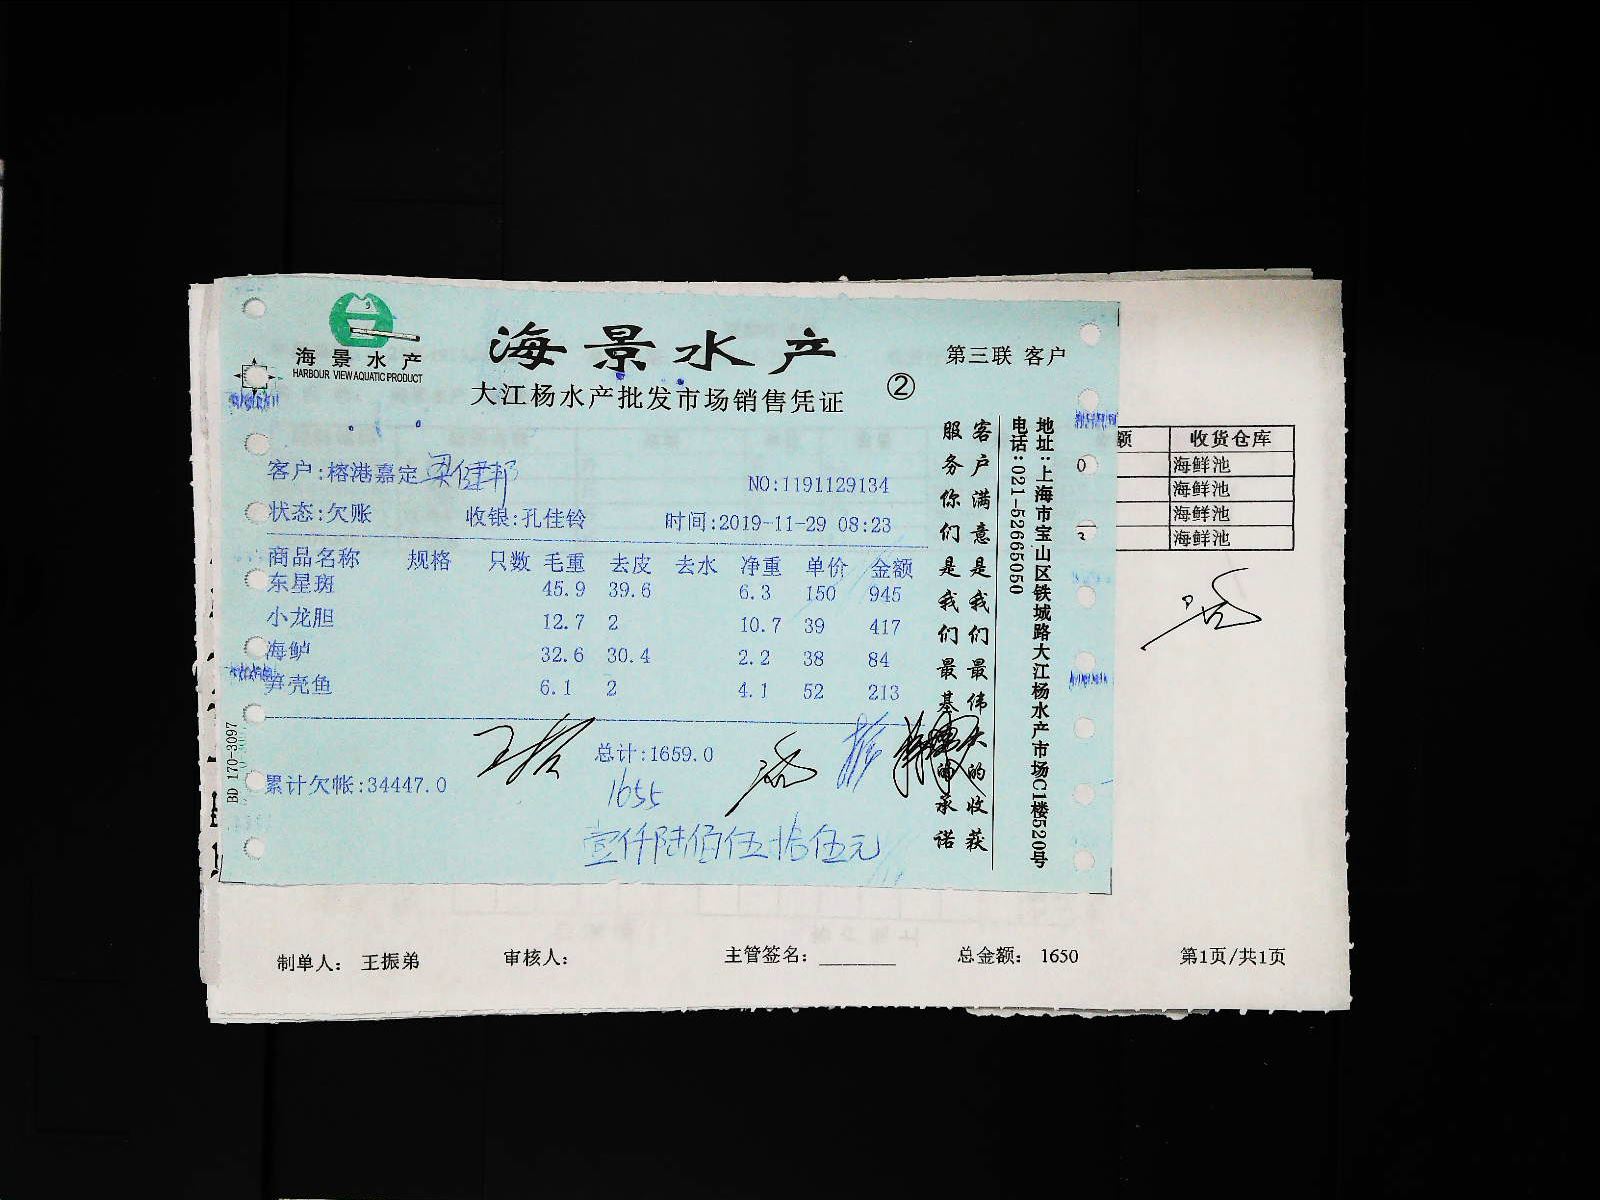 海景水产
HARBOUR VIEW AQUATIC PRODUCT
海景水产
大江杨水产批发市场销售凭证
②
第三联 客户
客户:榕港嘉定 梁健邦
NO:1191129134
状态:欠账 收银:孔佳铃 时间:2019-11-29 08:23
商品名称 规格 只数 毛重 去皮 去水 净重 单价 金额
东星斑 45.9 39.6 6.3 150 945
小龙胆 12.7 2 10.7 39 417
海鲈 32.6 30.4 2.2 38 84
笋壳鱼 6.1 2 4.1 52 213
总计:1659.0
累计欠帐:34447.0
1655
壹仟陆佰伍拾伍元
BD 170-3097
客户满意是我们最伟大的收获
服务你们是我们最基的承诺
地址:上海市宝山区铁城路大江杨水产市场C1楼520号
电话:021-52665050
额 收货仓库
0 海鲜池
海鲜池
海鲜池
2 海鲜池
制单人: 王振弟 审核人: 主管签名: 总金额: 1650 第1页/共1页